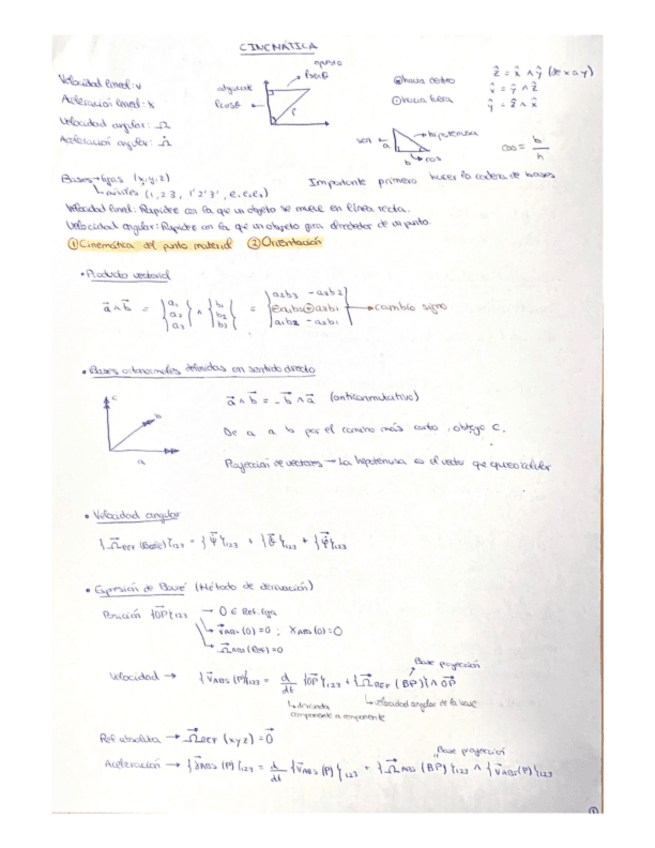 CINEMÁTICA
Velocidad lineal: v
Aceleración lineal: ɣ
Velocidad angular: Ω
Aceleración angular: Ω̇
opuesto
ρsenθ
adyacente
ρcosθ
ρ
⊗hacia dentro
⊙hacia fuera
ẑ = x̂ ∧ ŷ (de x a y)
x̂ = ŷ ∧ ẑ
ŷ = ẑ ∧ x̂
sen ← a
hipotenusa
b → cos
cos = b/h
Bases → fijas (x,y,z)
↳ móviles (1,2,3, 1'2'3', e₁e₂e₃)
Importante primero hacer la cadena de bases
Velocidad lineal: Rapidez con la que un objeto se mueve en línea recta.
Velocidad angular: Rapidez con la que un objeto gira alrededor de un punto.
① Cinemática del punto material ② Orientación
• Producto vectorial
a⃗ ∧ b⃗ = {a₁ a₂ a₃} ∧ {b₁ b₂ b₃} = {a₂b₃ - a₃b₂ ⊖a₁b₃⊕a₃b₁ a₁b₂ - a₂b₁} → cambio signo
• Bases ortonormales definidas en sentido directo
c
b
a
a⃗ ∧ b⃗ = - b⃗ ∧ a⃗ (anticonmutativo)
De a a b por el camino más corto, obtengo c.
Proyección de vectores → La hipotenusa es el vector que quiero
• Velocidad angular
{Ω⃗REF (Base)}₁₂₃ = {Ψ⃗̇}₁₂₃ + {θ⃗̇}₁₂₃ + {φ⃗̇}₁₂₃
• Expresión de Bouré (Método de derivación)
Posición {OP⃗}₁₂₃ → O ∈ Ref. fija
→ v⃗ABS (O) = 0 ; ɣABS (O) = 0
→ Ω⃗ABS (Ref) = 0
Base proyección
Velocidad → {v⃗ABS (P)}₁₂₃ = d/dt {OP⃗}₁₂₃ + {Ω⃗REF (BP)} ∧ OP⃗
↳ derivada componente a componente
↳ velocidad angular de la base
Ref absoluta → Ω⃗REF (xyz) = 0⃗
Base proyección
Aceleración → {ɣ⃗ABS (P)}₁₂₃ = d/dt {v⃗ABS (P)}₁₂₃ + {Ω⃗ABS (BP)}₁₂₃ ∧ {v⃗ABS (P)}₁₂₃
①